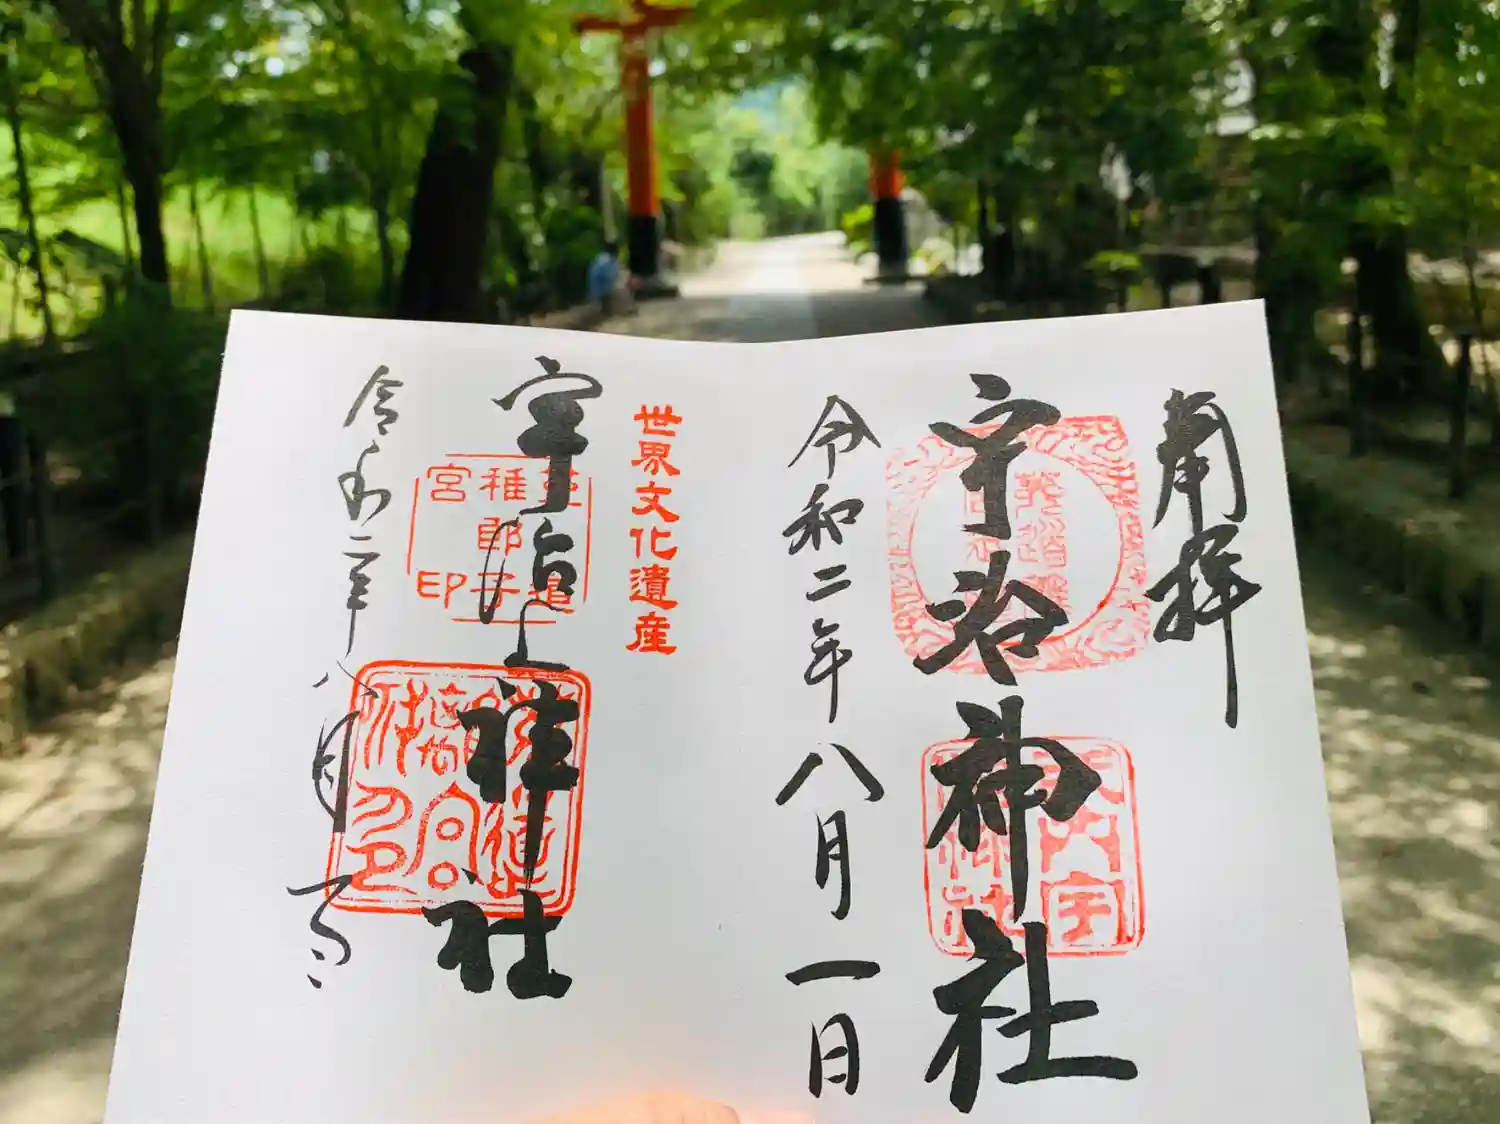 奉拝
宇治神社
令和二年八月一日
世界文化遺産
宇治上神社
菟道
稚郎子
宮印
令和二年八月一日